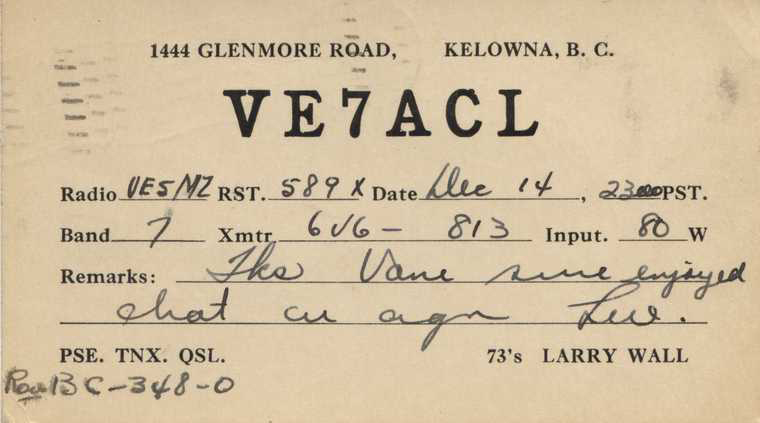 1444 GLENMORE ROAD, KELOWNA, B. C.
VE7ACL
Radio VE5MZ RST. 589 X Date Dec 14, 2300 PST.
Band 7 Xmtr 6V6 - 813 Input. 80 W
Remarks: Tks Vane sure enjoyed
chat cu agn
PSE. TNX. QSL. 73's LARRY WALL
BC-348-O